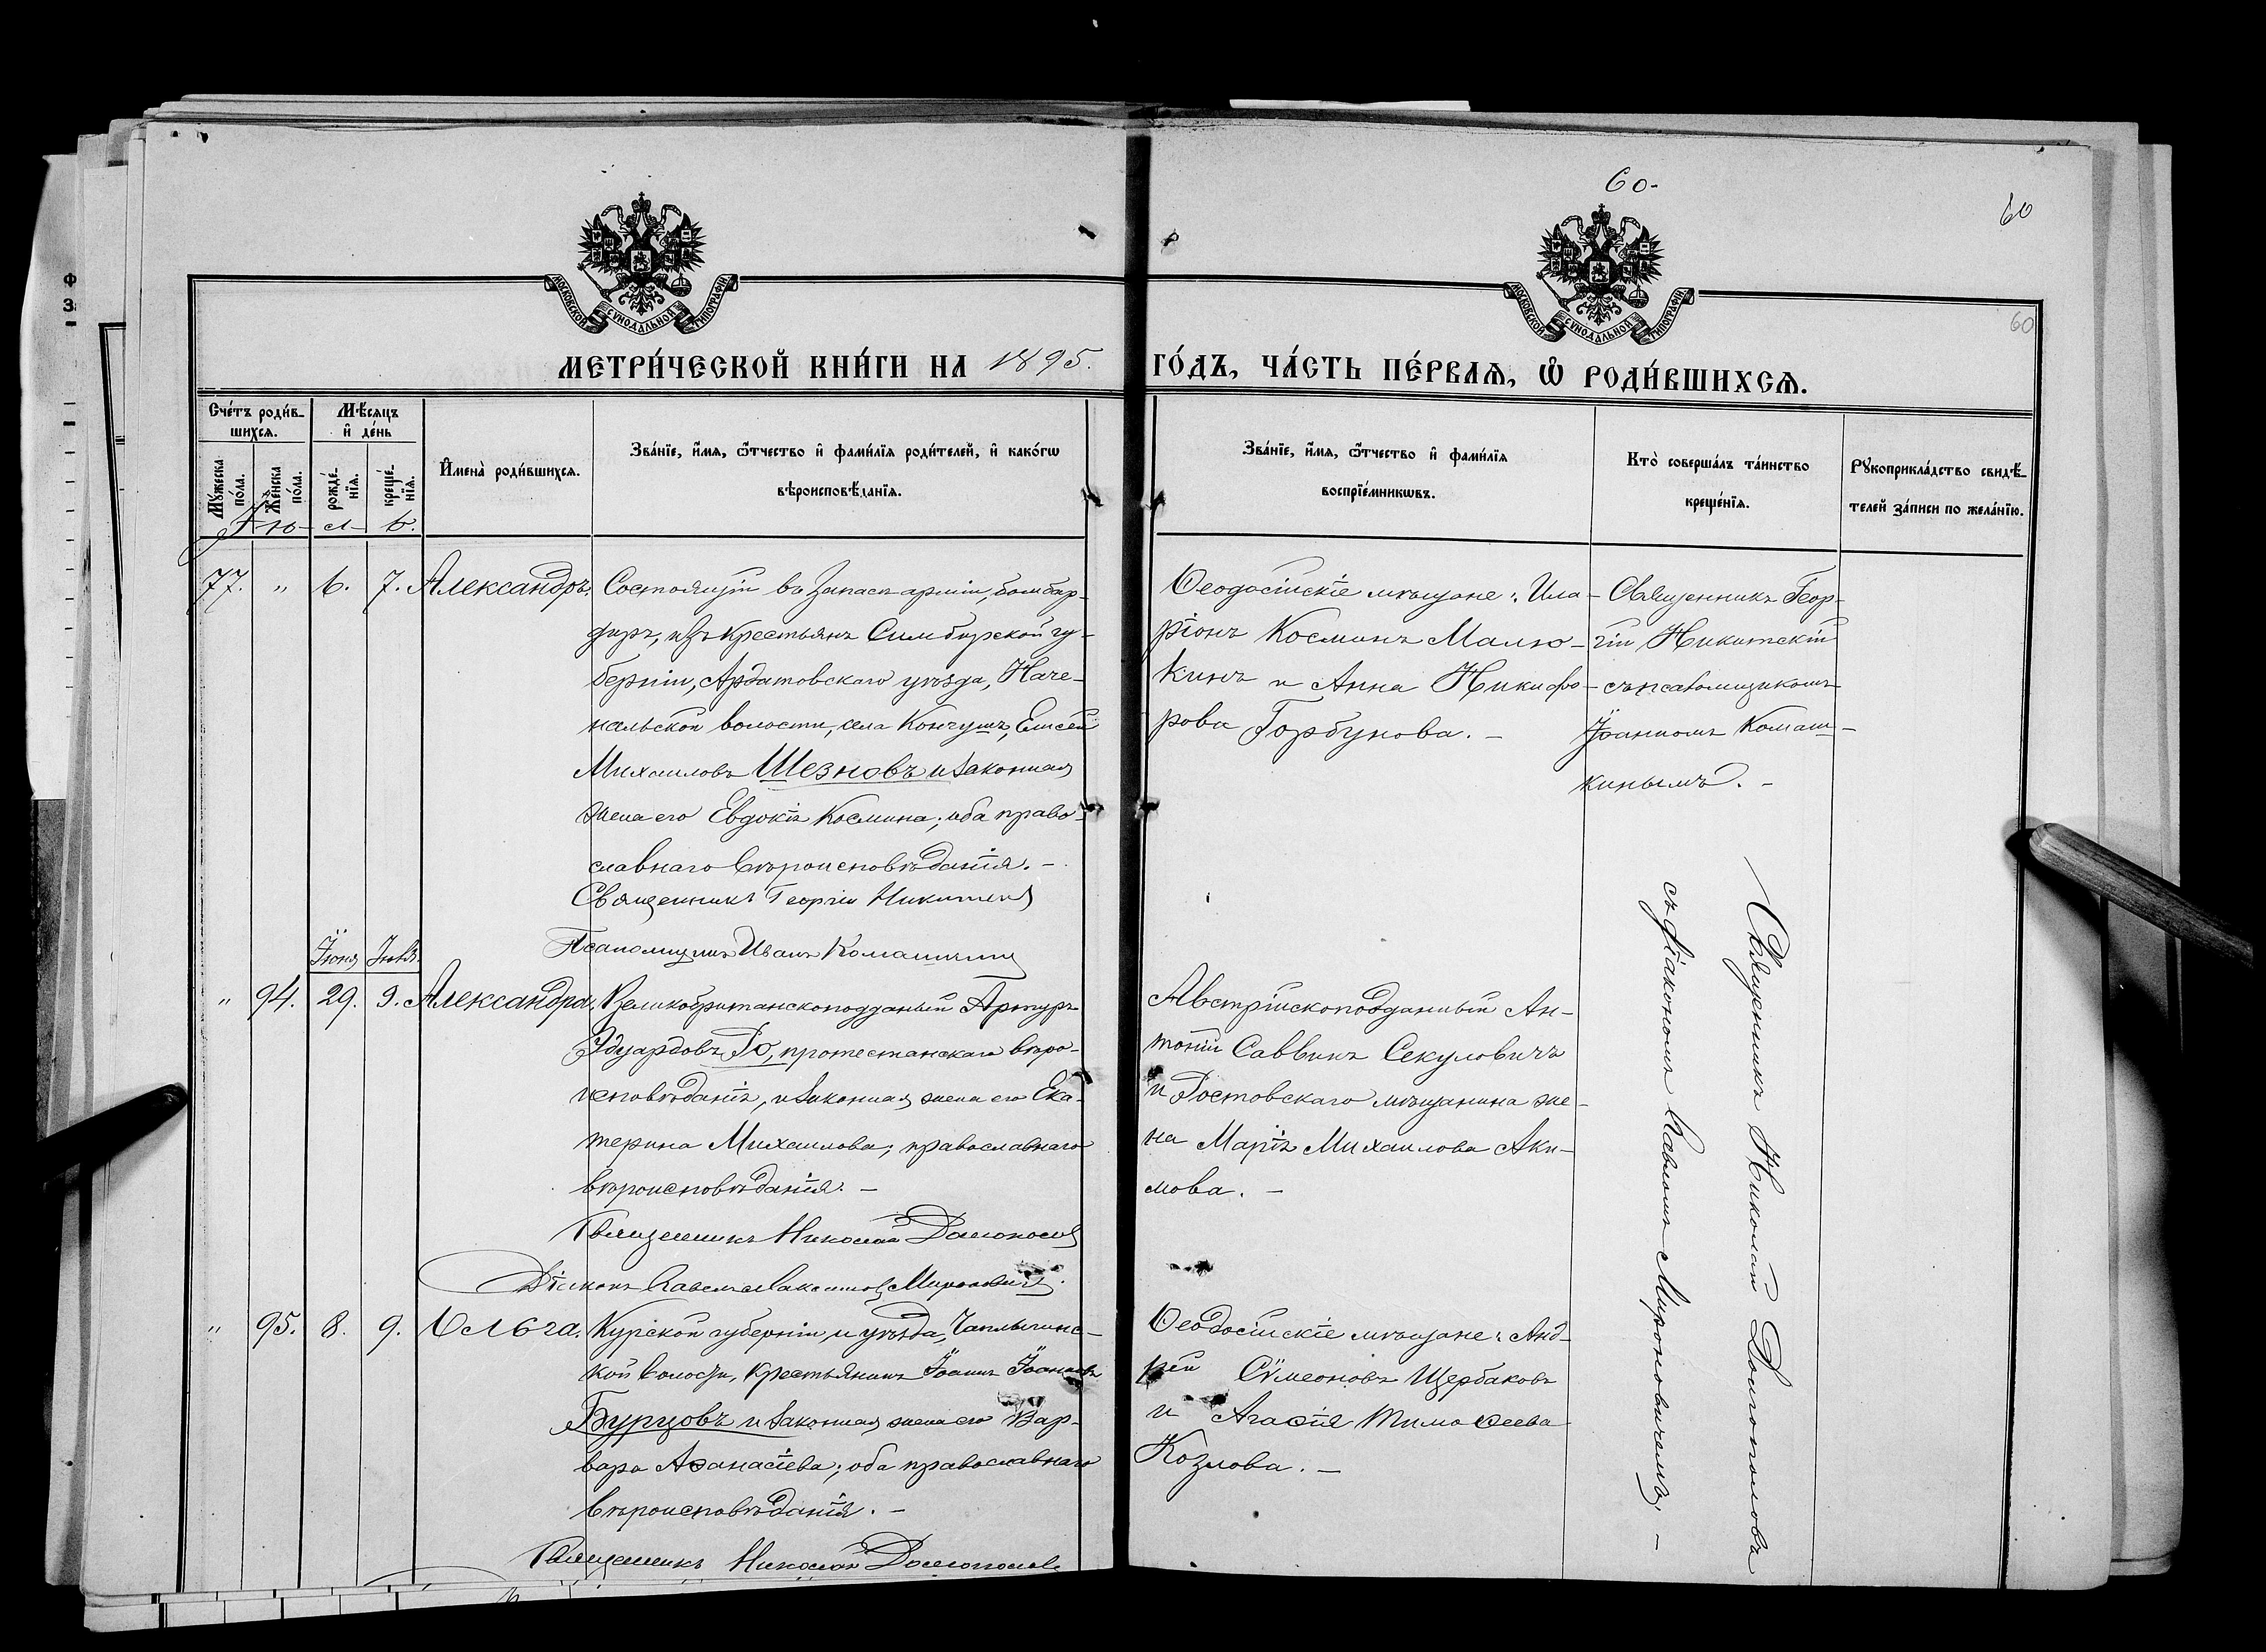 60-
60
60
МОСКОВСКОЙ СѴНОДАЛЬНОЙ ТИПОГРАФІИ
МОСКОВСКОЙ СѴНОДАЛЬНОЙ ТИПОГРАФІИ
МЕТРИ́ЧЕСКОЙ КНИ́ГИ НА 1895. ГО́ДЪ, ЧА́СТЬ ПЕ́РВАѦ, Ѡ РОДИ́ВШИХСѦ.
Счетъ родив-
шихся.
Мужеска
пола.
Женска
пола.
Мѣсяцъ
и день
рожде-
нія.
креще-
нія.
Имена родившихся.
Званіе, имя, отчество и фамилія родителей, и какогѡ
вѣроисповѣданія.
Званіе, имя, отчество и фамилія
воспріемникѡвъ.
Кто совершалъ таинство
крещенія.
Рукоприкладство свидѣ-
телей записи по желанію.
Ію- л- ь.
77. " 6. 7. Александръ.
Состоящій въ запасѣ арміи, бомбар-
диръ, изъ крестьянъ Симбирской гу-
берніи, Ардатовскаго уѣзда, Наче-
нальской волости, села Кончушъ, Елисей
Михаиловъ Шезновъ и законная
жена его Евдокія Космина; оба право-
славнаго вѣроисповѣданія. -
Священникъ Георгій Никитскій
Псаломщикъ Иванъ Комашкинъ
Ѳеодосійскіе мѣщане: Ила-
ріонъ Косминъ Малю-
кинъ и Анна Никифо-
рова Горбунова. -
Священникъ Геор-
гій Никитскій
съ псаломщикомъ
Іоанномъ Комаш-
кинымъ. -
Іюня Іюля.
" 94. 29. 9. Александра.
Великобританскоподданый Артуръ
Эдуардовъ Го, протестанскаго вѣро-
исповѣданія, и законная жена его Ека-
терина Михаилова, православнаго
вѣроисповѣданія. -
Священникъ Николай Долгополовъ
Діаконъ Павелъ Мироновичъ.
Австрійскоподданный Ан-
тоній Саввинъ Секуловичъ
и Ростовскаго мѣщанина же-
на Марія Михаилова Аки-
мова. -
Священникъ Николай Долгополовъ
съ діакономъ Павломъ Мироновичемъ. -
" 95. 8. 9. Ольга.
Курской губерніи и уѣзда, Чаплыгинс-
кой волости, крестьянинъ Іоаннъ Іоанновъ
Бурцовъ и законная жена его Вар-
вара Аѳанасіева; оба православнаго
вѣроисповѣданія. -
Священникъ Николай Долгополовъ
Ѳеодосійскіе мѣщане: Анд-
рей Сѵмеоновъ Щербаковъ
и Агаѳія Тимоѳеева
Козлова. -